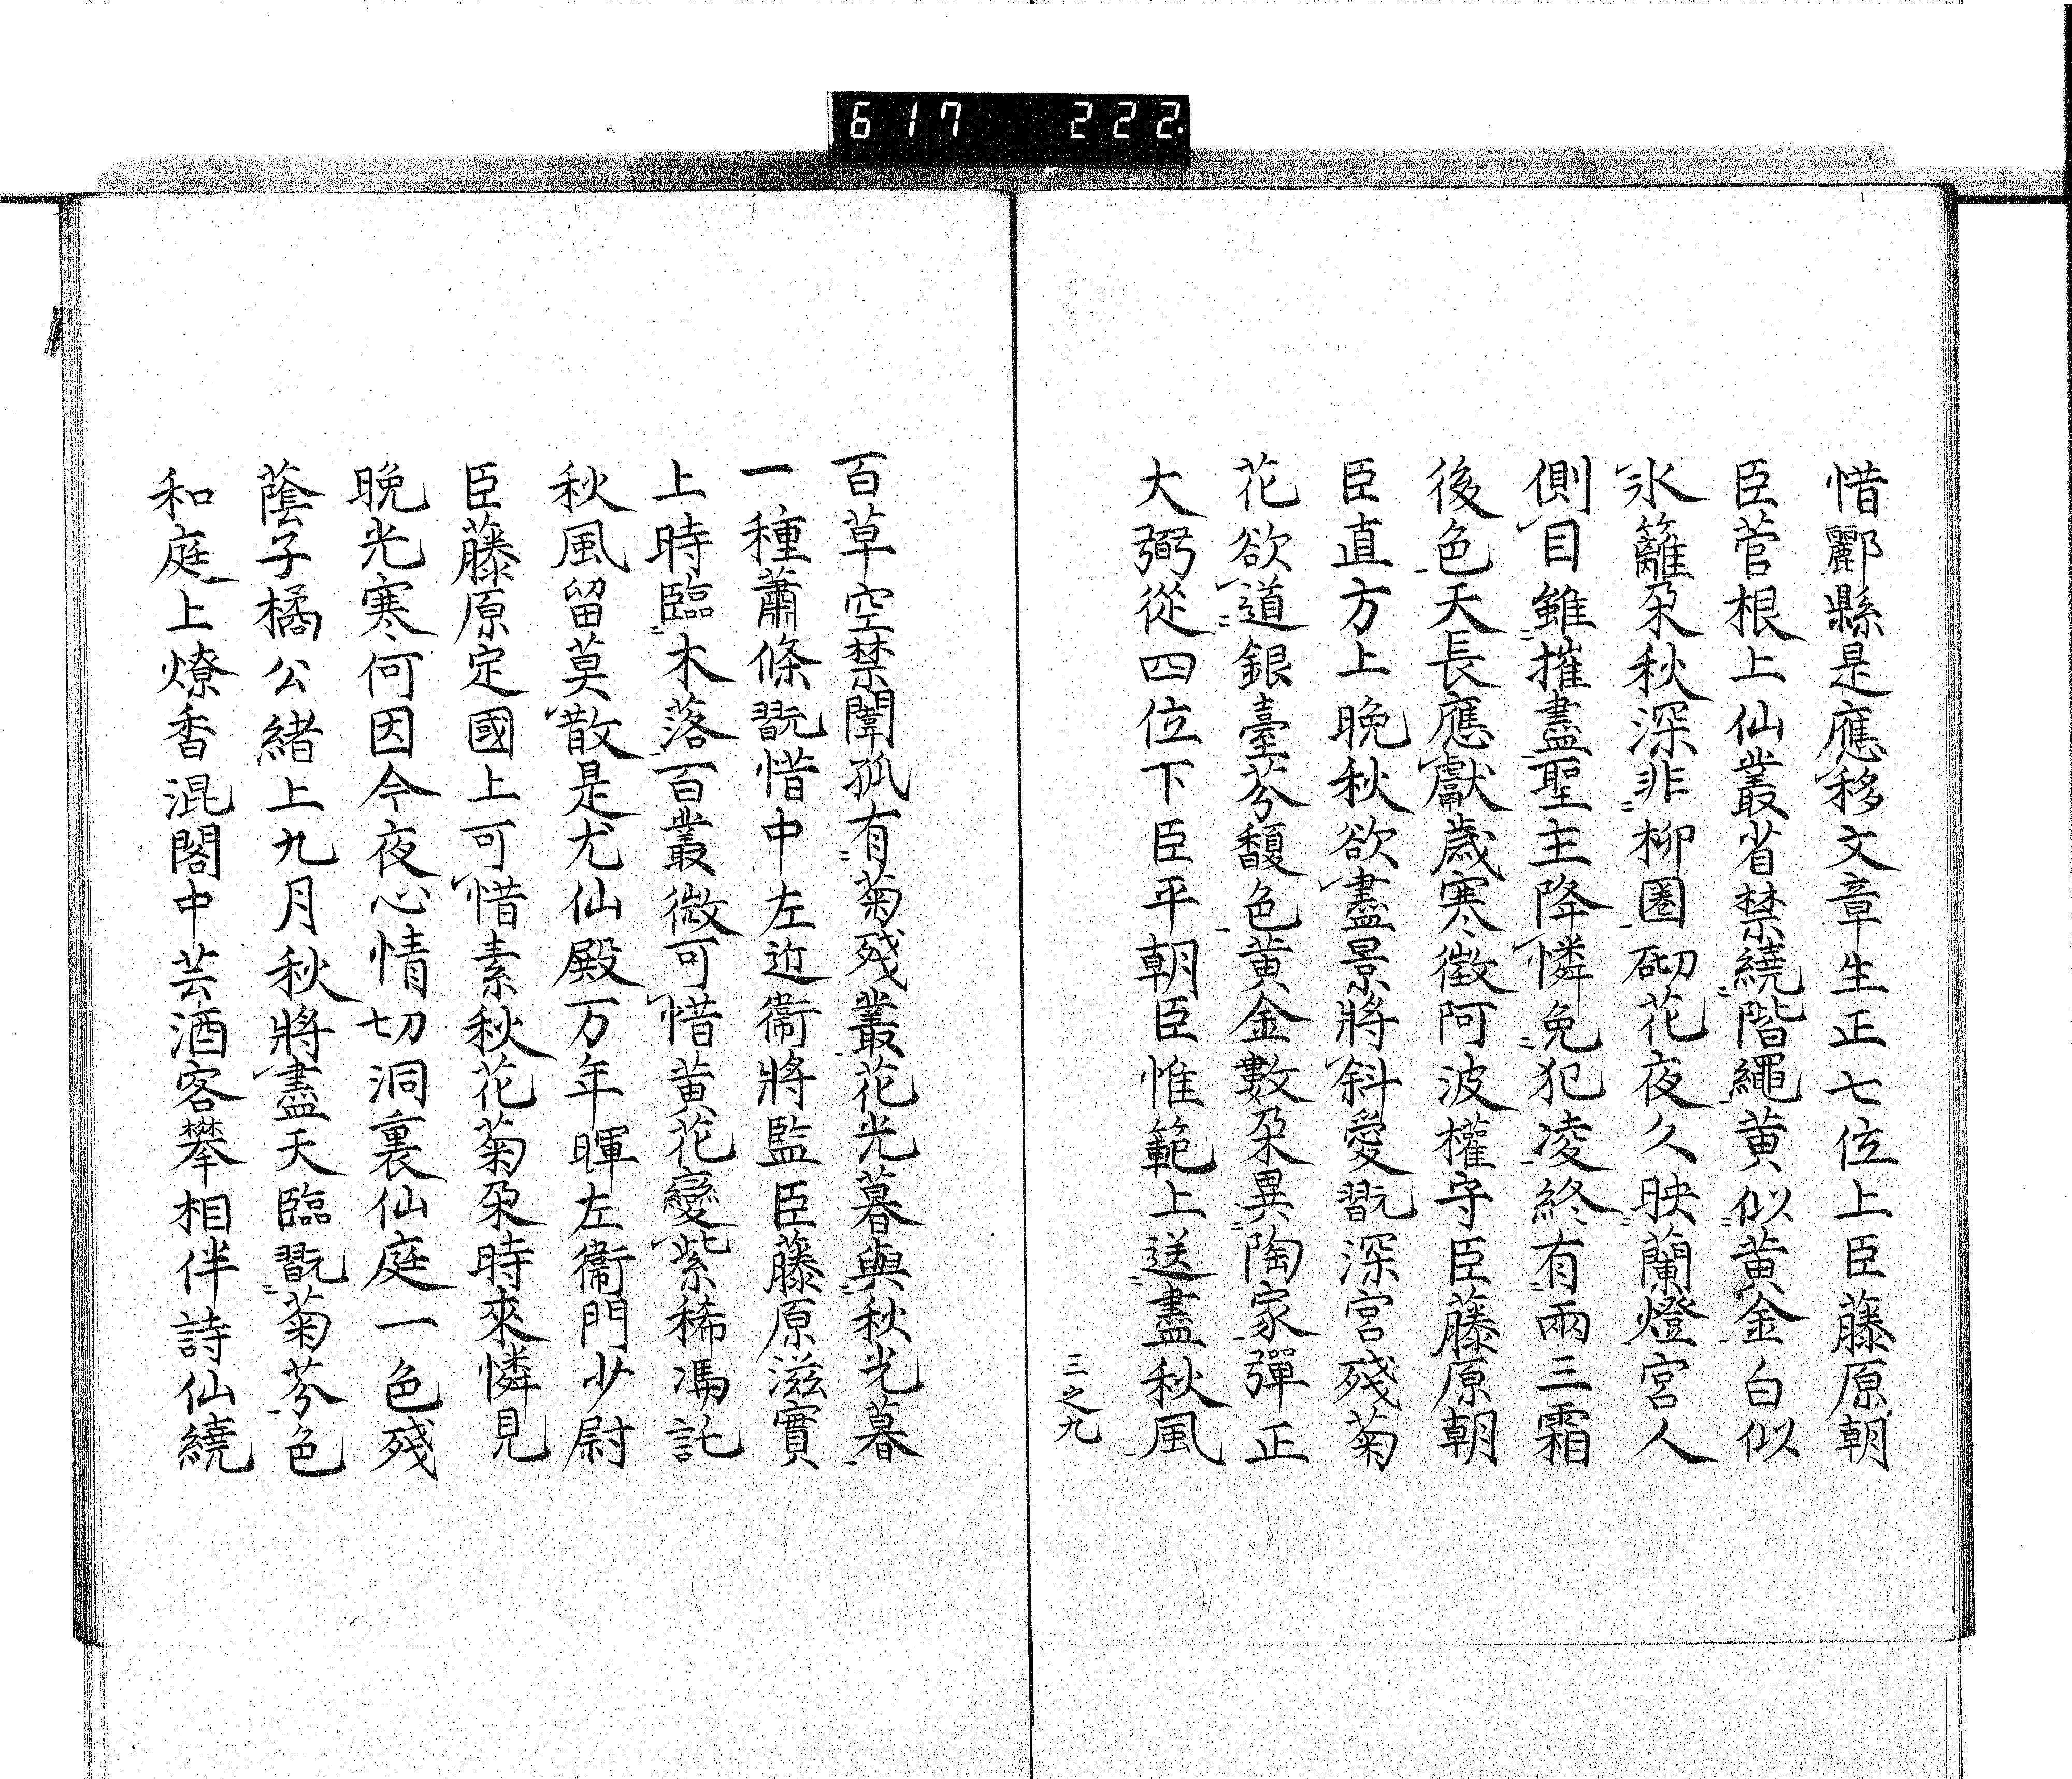 617 222.
惜酈縣是應移文章生正七位上臣藤原朝
臣菅根上仙叢省禁繞階繩黄似黄金白似
氷籬朶秋深非柳圏砌花夜久映蘭燈宮人
側目雖摧盡聖主降憐免犯凌終有兩三霜
後色天長應獻歳寒徴阿波權守臣藤原朝
臣直方上晩秋欲盡景將斜愛翫深宮殘菊
花欲道銀臺芬馥色黄金數朶異陶家彈正
大弼從四位下臣平朝臣惟範上送盡秋風
三之九
百草空禁闈孤有菊殘叢花光暮與秋光暮
一種蕭條翫惜中左近衞將監臣藤原滋實
上時臨木落百叢微可惜黄花變紫稀馮託
秋風留莫散是尤仙殿万年暉左衞門少尉
臣藤原定國上可惜素秋花菊朶時來憐見
晩光寒何因今夜心情切洞裏仙庭一色殘
蔭子橘公緒上九月秋將盡天臨翫菊芬色
和庭上燎香混閣中芸酒客攀相伴詩仙繞